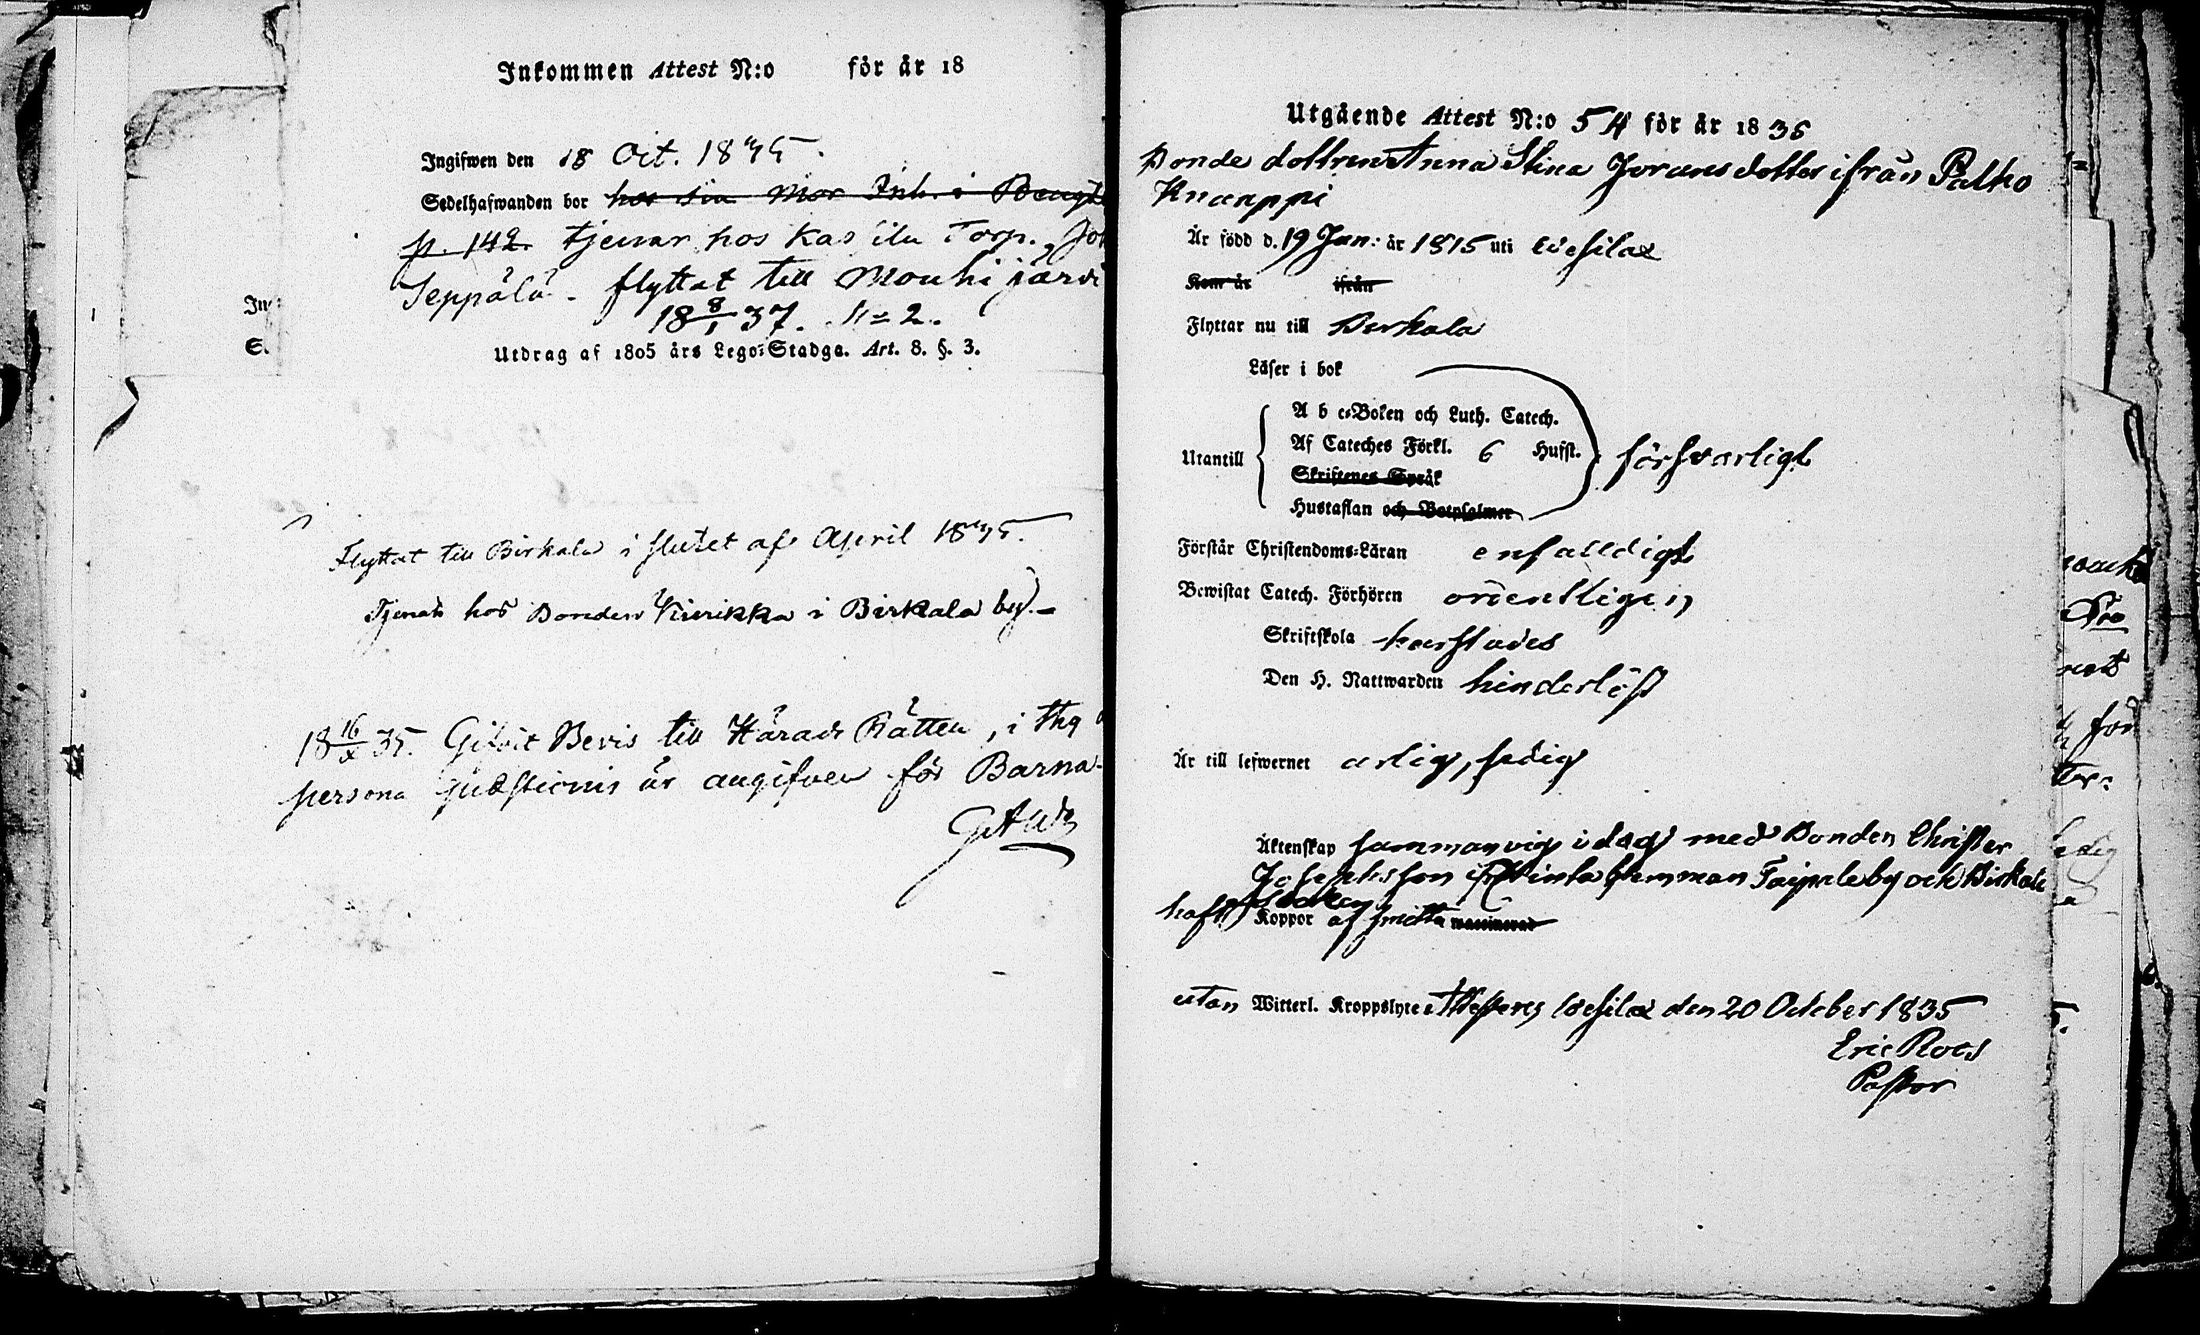 Inkommen Attest N:o för år 18
Ingifwen den 18 Oct. 1835.
Sedelhafwanden bor hos sin Mor Inh. i
p. 142. tjenar hos Torp.
Seppälä. flyttat till Mouhijärvi
18 8/1 37. N:o 2.
Utdrag af 1805 års Lego-Stadga. Art. 8. §. 3.
Flyttat till Birkala i slutet af April 1835.
Tjenar hos Bonden i Birkala by.
18 16/x 35. Gifvit Bevis till Härads Rätten, i
persona quæstionis är angifven för Barna-
Utgående Attest N:o 54 för år 1836
Bonde dottren Anna Stina Joransdotter ifrån Palho
Knaappi
Är född d. 19 Jan: år 1815 uti Wesilax
Kom år ifrån
Flyttar nu till Birkala
Läser i bok
A b c-Boken och Luth. Catech.
Utantill Af Cateches Förkl. 6 Hufst. försvarligt
Skriftenes Språk
Hustaflan och Botpsalmer
Förstår Christendoms-Läran enfalldigt
Bewistat Catech. Förhören ordentligen
Skriftskola
Den H. Nattwarden hinderlöst
Är till lefwernet ärlig, sedig
Äktenskap sammanvigd i dag med Bonden Christer
Josephsson ifrån hemman Taipale by och Birkala
Socken
haft Koppor af smitta waccinerad
utan Witterl. Kroppslyte Attesteras Wesilax den 20 October 1835
Eric Roos
Pastor